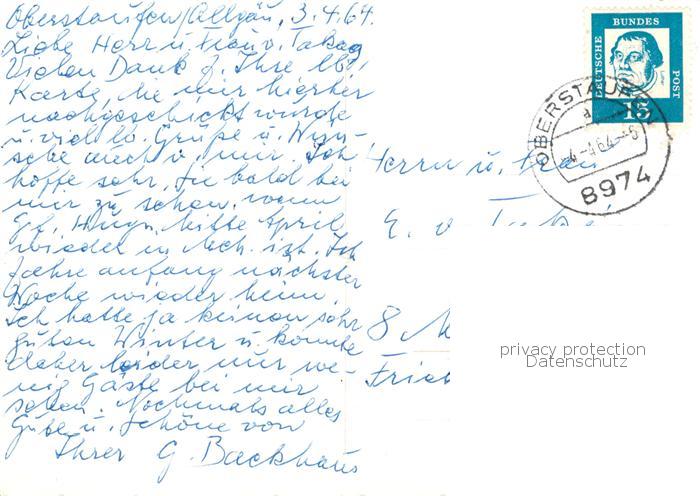 Oberstaufen/Allgäu, 3.4.64.
Liebe Herr u. Frau v. Takag
Vielen Dank f. Ihre lb.
Karte, die mir hierher
nachgeschickt wurde
u. viel lb. Grüße u. Wün-
sche auch v. mir. Ich
hoffe sehr, Sie bald bei
mir zu sehen, wenn
Gf. Hugo Mitte April
wieder in Mch. ist. Ich
fahre anfang nächster
Woche wieder heim.
Ich hatte ja keinen sehr
guten Winter u. konnte
daher leider nur we-
nig Gäste bei mir
sehen. Nochmals alles
Gute u. Schöne von
Ihrer G. Backhaus
DEUTSCHE BUNDES POST
15
OBERSTAUFEN
a
-4.-4.64.-6
8974
Herrn u. Frau
E. v.
8 M
Fried
privacy protection
Datenschutz